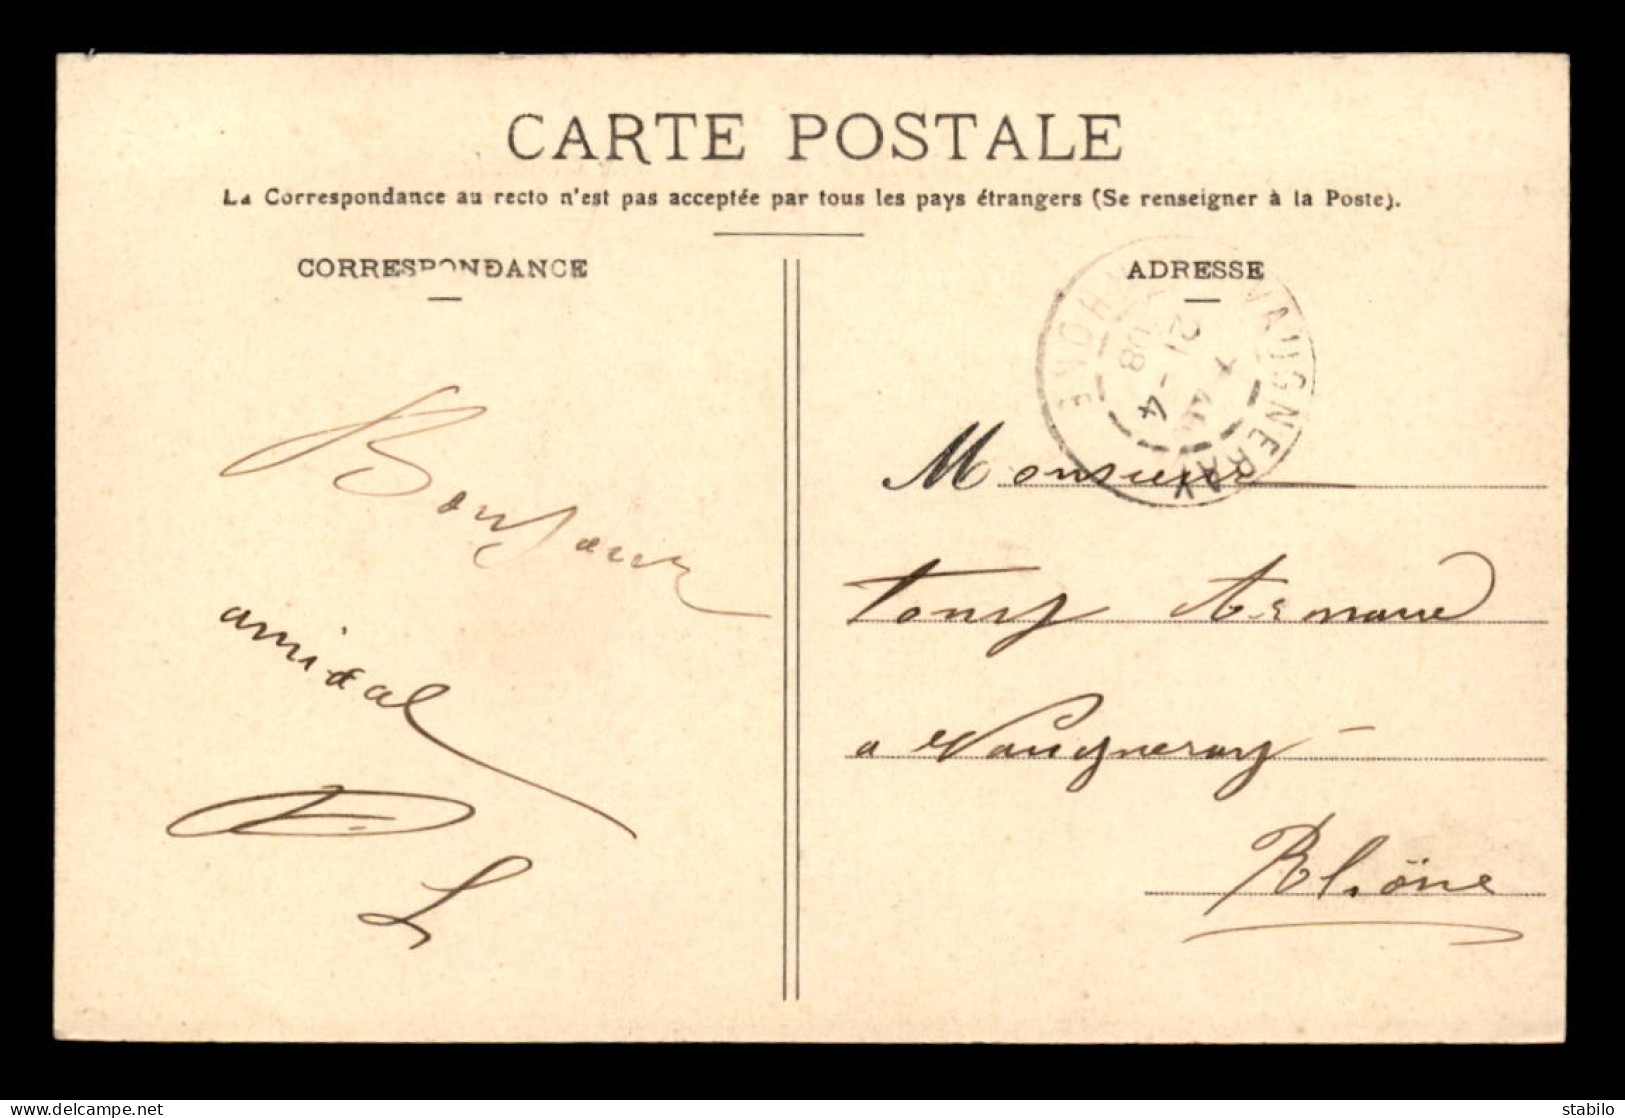 CARTE POSTALE
La Correspondance au recto n'est pas acceptée par tous les pays étrangers (Se renseigner à la Poste).
CORRESPONDANCE
Bonjour
amical
L
ADRESSE
VAUGNERAY
RHONE
7 40
21 - 4
08
Monsieur
Tony Arnaud
a Vaugneray -
Rhône
delcampe.net
stabilo